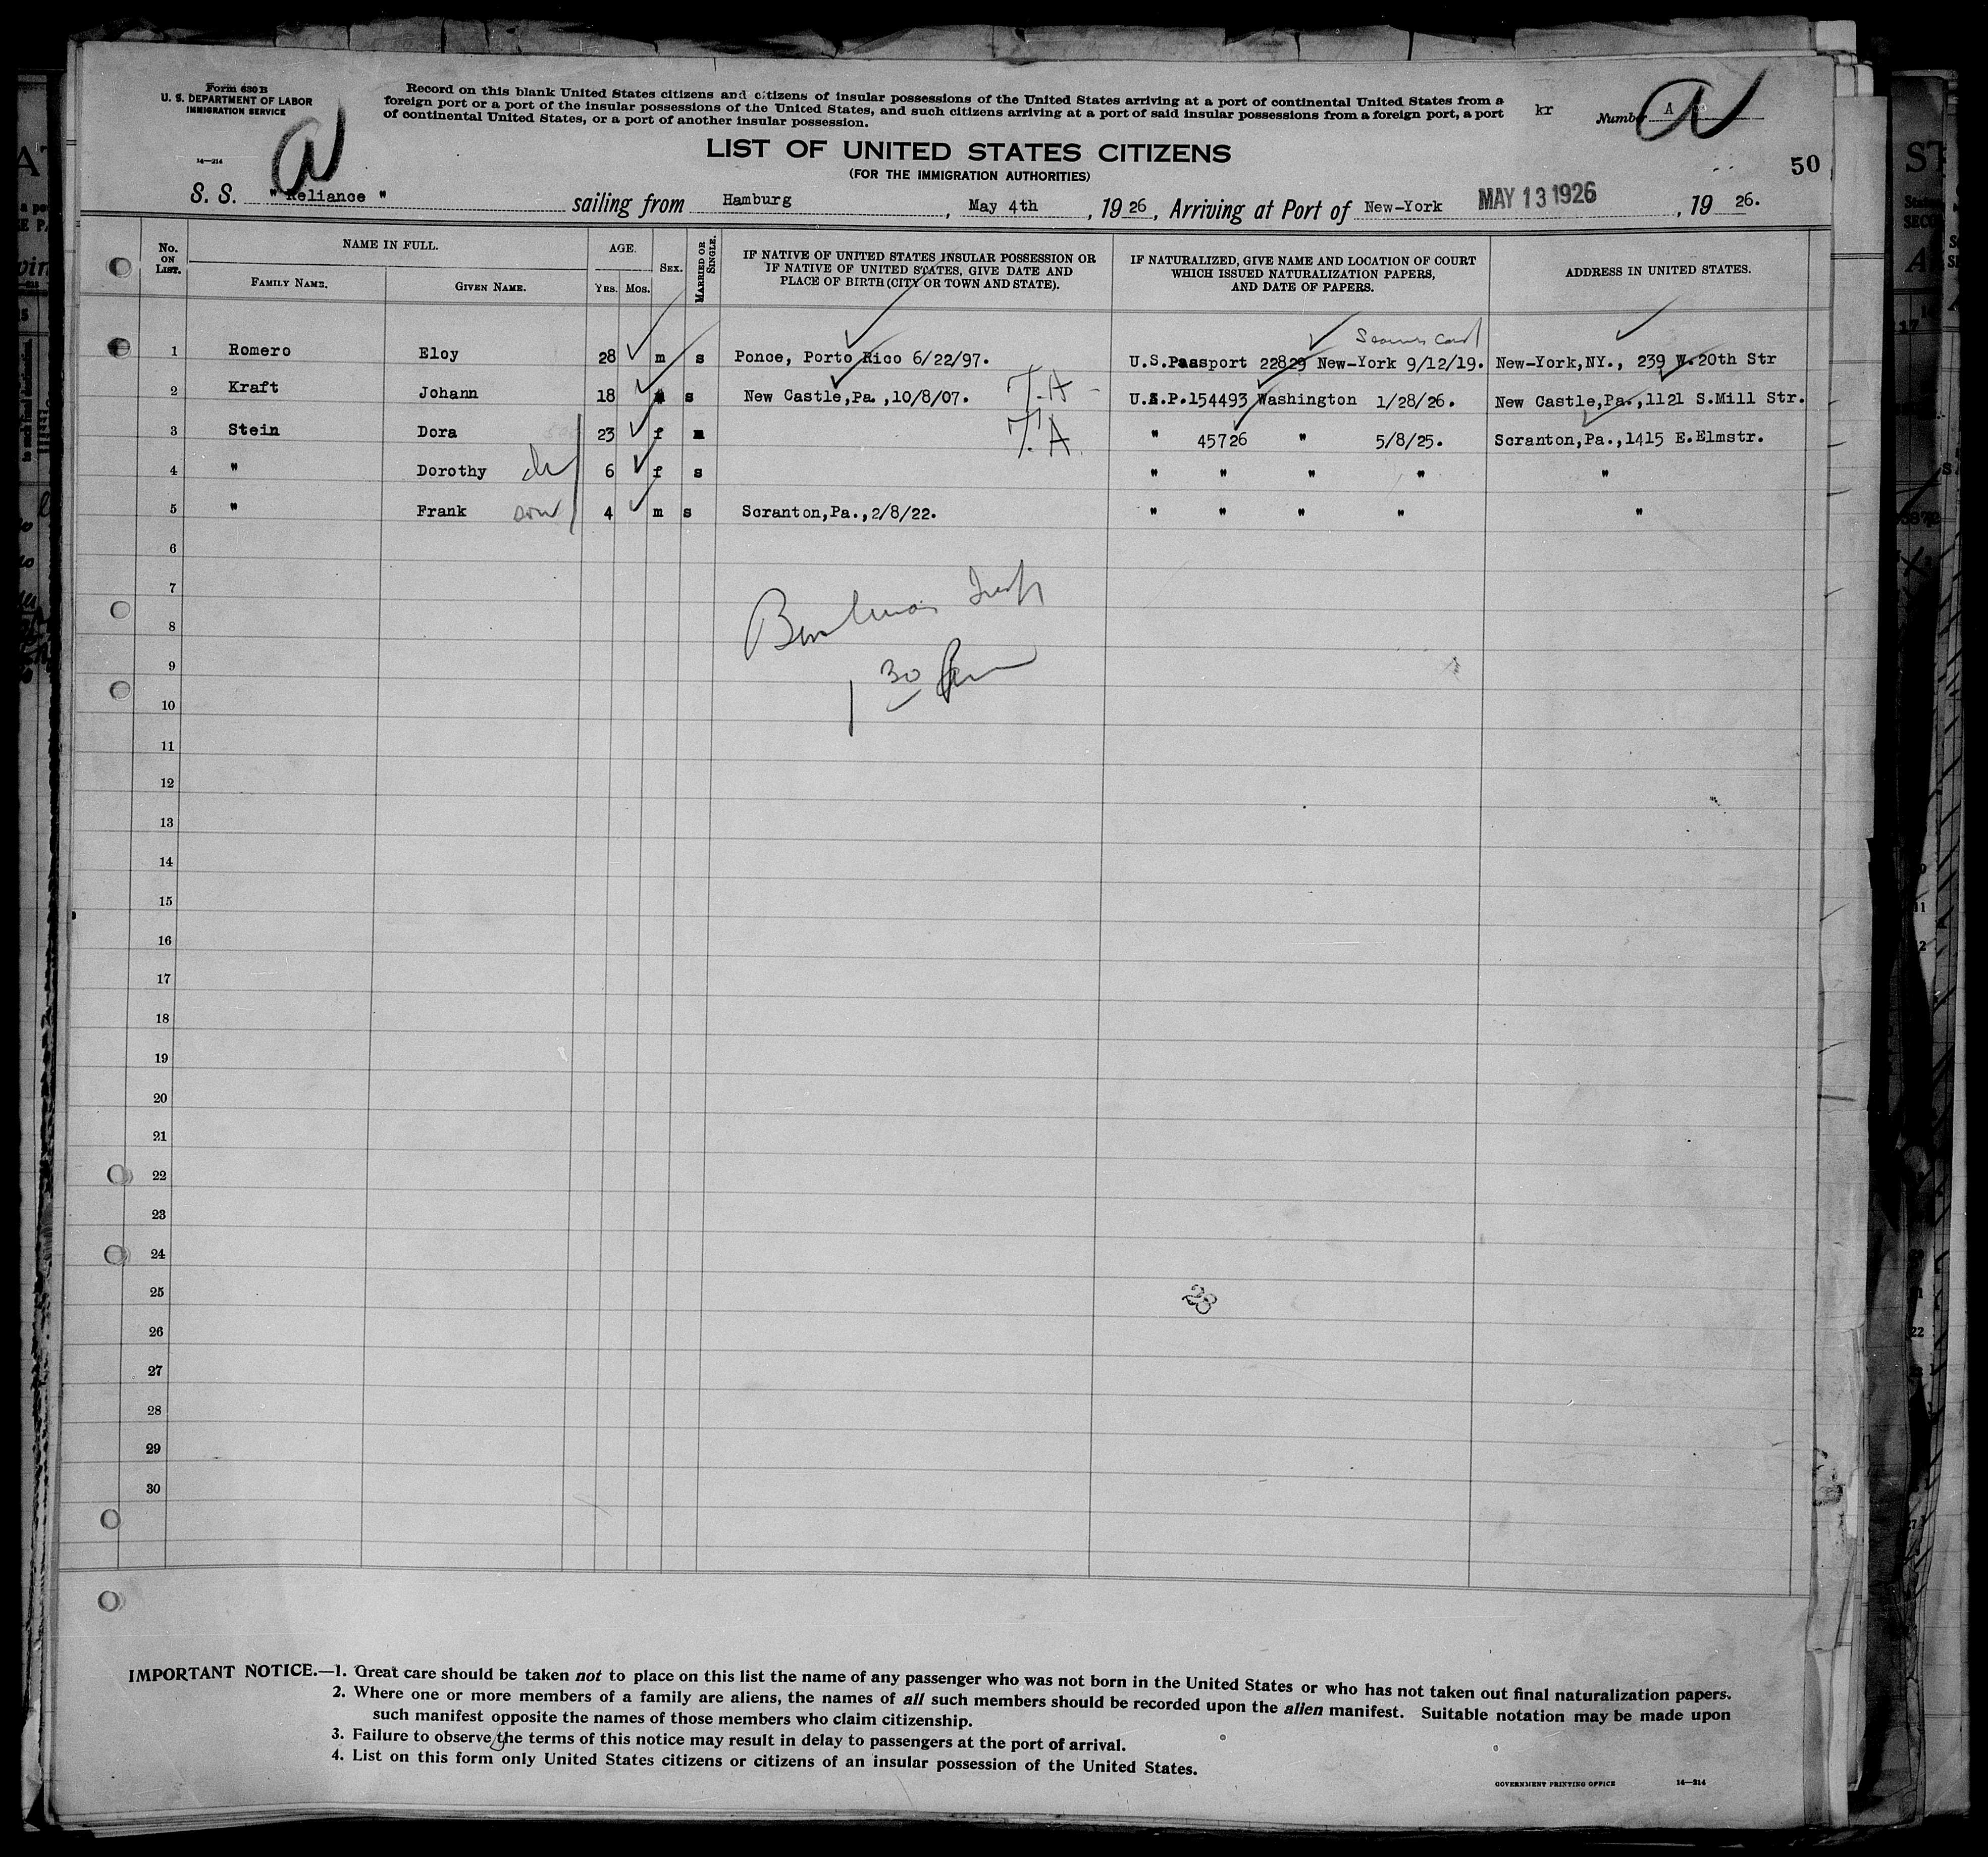 Form 630 B
U. S. DEPARTMENT OF LABOR
IMMIGRATION SERVICE
14—214
Record on this blank United States citizens and citizens of insular possessions of the United States arriving at a port of continental United States from a
foreign port or a port of the insular possessions of the United States, and such citizens arriving at a port of said insular possessions from a foreign port, a port
of continental United States, or a port of another insular possession.
kr
Number A
LIST OF UNITED STATES CITIZENS
(FOR THE IMMIGRATION AUTHORITIES)
50
S. S. "Reliance" sailing from Hamburg, May 4th, 1926, Arriving at Port of New-York MAY 13 1926, 19 26.
No. ON LIST. NAME IN FULL. AGE. SEX. MARRIED OR SINGLE. IF NATIVE OF UNITED STATES INSULAR POSSESSION OR IF NATIVE OF UNITED STATES, GIVE DATE AND PLACE OF BIRTH (CITY OR TOWN AND STATE). IF NATURALIZED, GIVE NAME AND LOCATION OF COURT WHICH ISSUED NATURALIZATION PAPERS, AND DATE OF PAPERS. ADDRESS IN UNITED STATES.
FAMILY NAME. GIVEN NAME. YRS. MOS.
1 Romero Eloy 28 m s Ponce, Porto Rico 6/22/97. U.S.Passport 22829 New-York 9/12/19. New-York,NY., 239 W.20th Str
2 Kraft Johann 18 s New Castle,Pa.,10/8/07. T.A U.S.P.154493 Washington 1/28/26. New Castle,Pa.,1121 S.Mill Str.
3 Stein Dora 23 f m T.A. " 45726 " 5/8/25. Scranton,Pa.,1415 E.Elmstr.
4 " Dorothy 6 f s " " " " "
5 " Frank son 4 m s Scranton,Pa.,2/8/22. " " " " "
6
7
8
9
1 30
10
11
12
13
14
15
16
17
18
19
20
21
22
23
24
25
28
26
27
28
29
30
IMPORTANT NOTICE.—1. Great care should be taken not to place on this list the name of any passenger who was not born in the United States or who has not taken out final naturalization papers.
2. Where one or more members of a family are aliens, the names of all such members should be recorded upon the alien manifest. Suitable notation may be made upon
such manifest opposite the names of those members who claim citizenship.
3. Failure to observe the terms of this notice may result in delay to passengers at the port of arrival.
4. List on this form only United States citizens or citizens of an insular possession of the United States.
GOVERNMENT PRINTING OFFICE 14—214